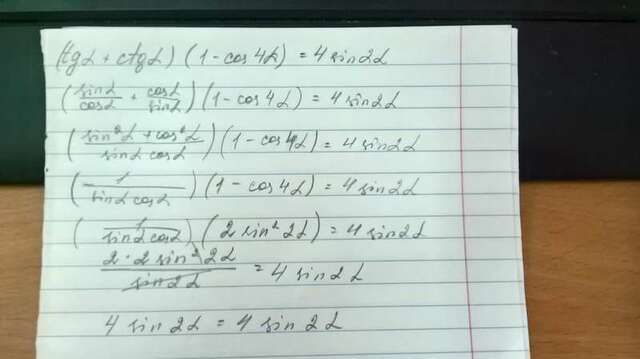 (tgα + ctgα)(1 - cos 4α) = 4 sin 2α
(sinα/cosα + cosα/sinα)(1 - cos 4α) = 4 sin 2α
((sin²α + cos²α)/(sinα cosα))(1 - cos 4α) = 4 sin 2α
(1/(sinα cosα))(1 - cos 4α) = 4 sin 2α
(1/(sinα cosα))(2 sin² 2α) = 4 sin 2α
(2 · 2 sin² 2α)/(sin 2α) = 4 sin 2α
4 sin 2α = 4 sin 2α